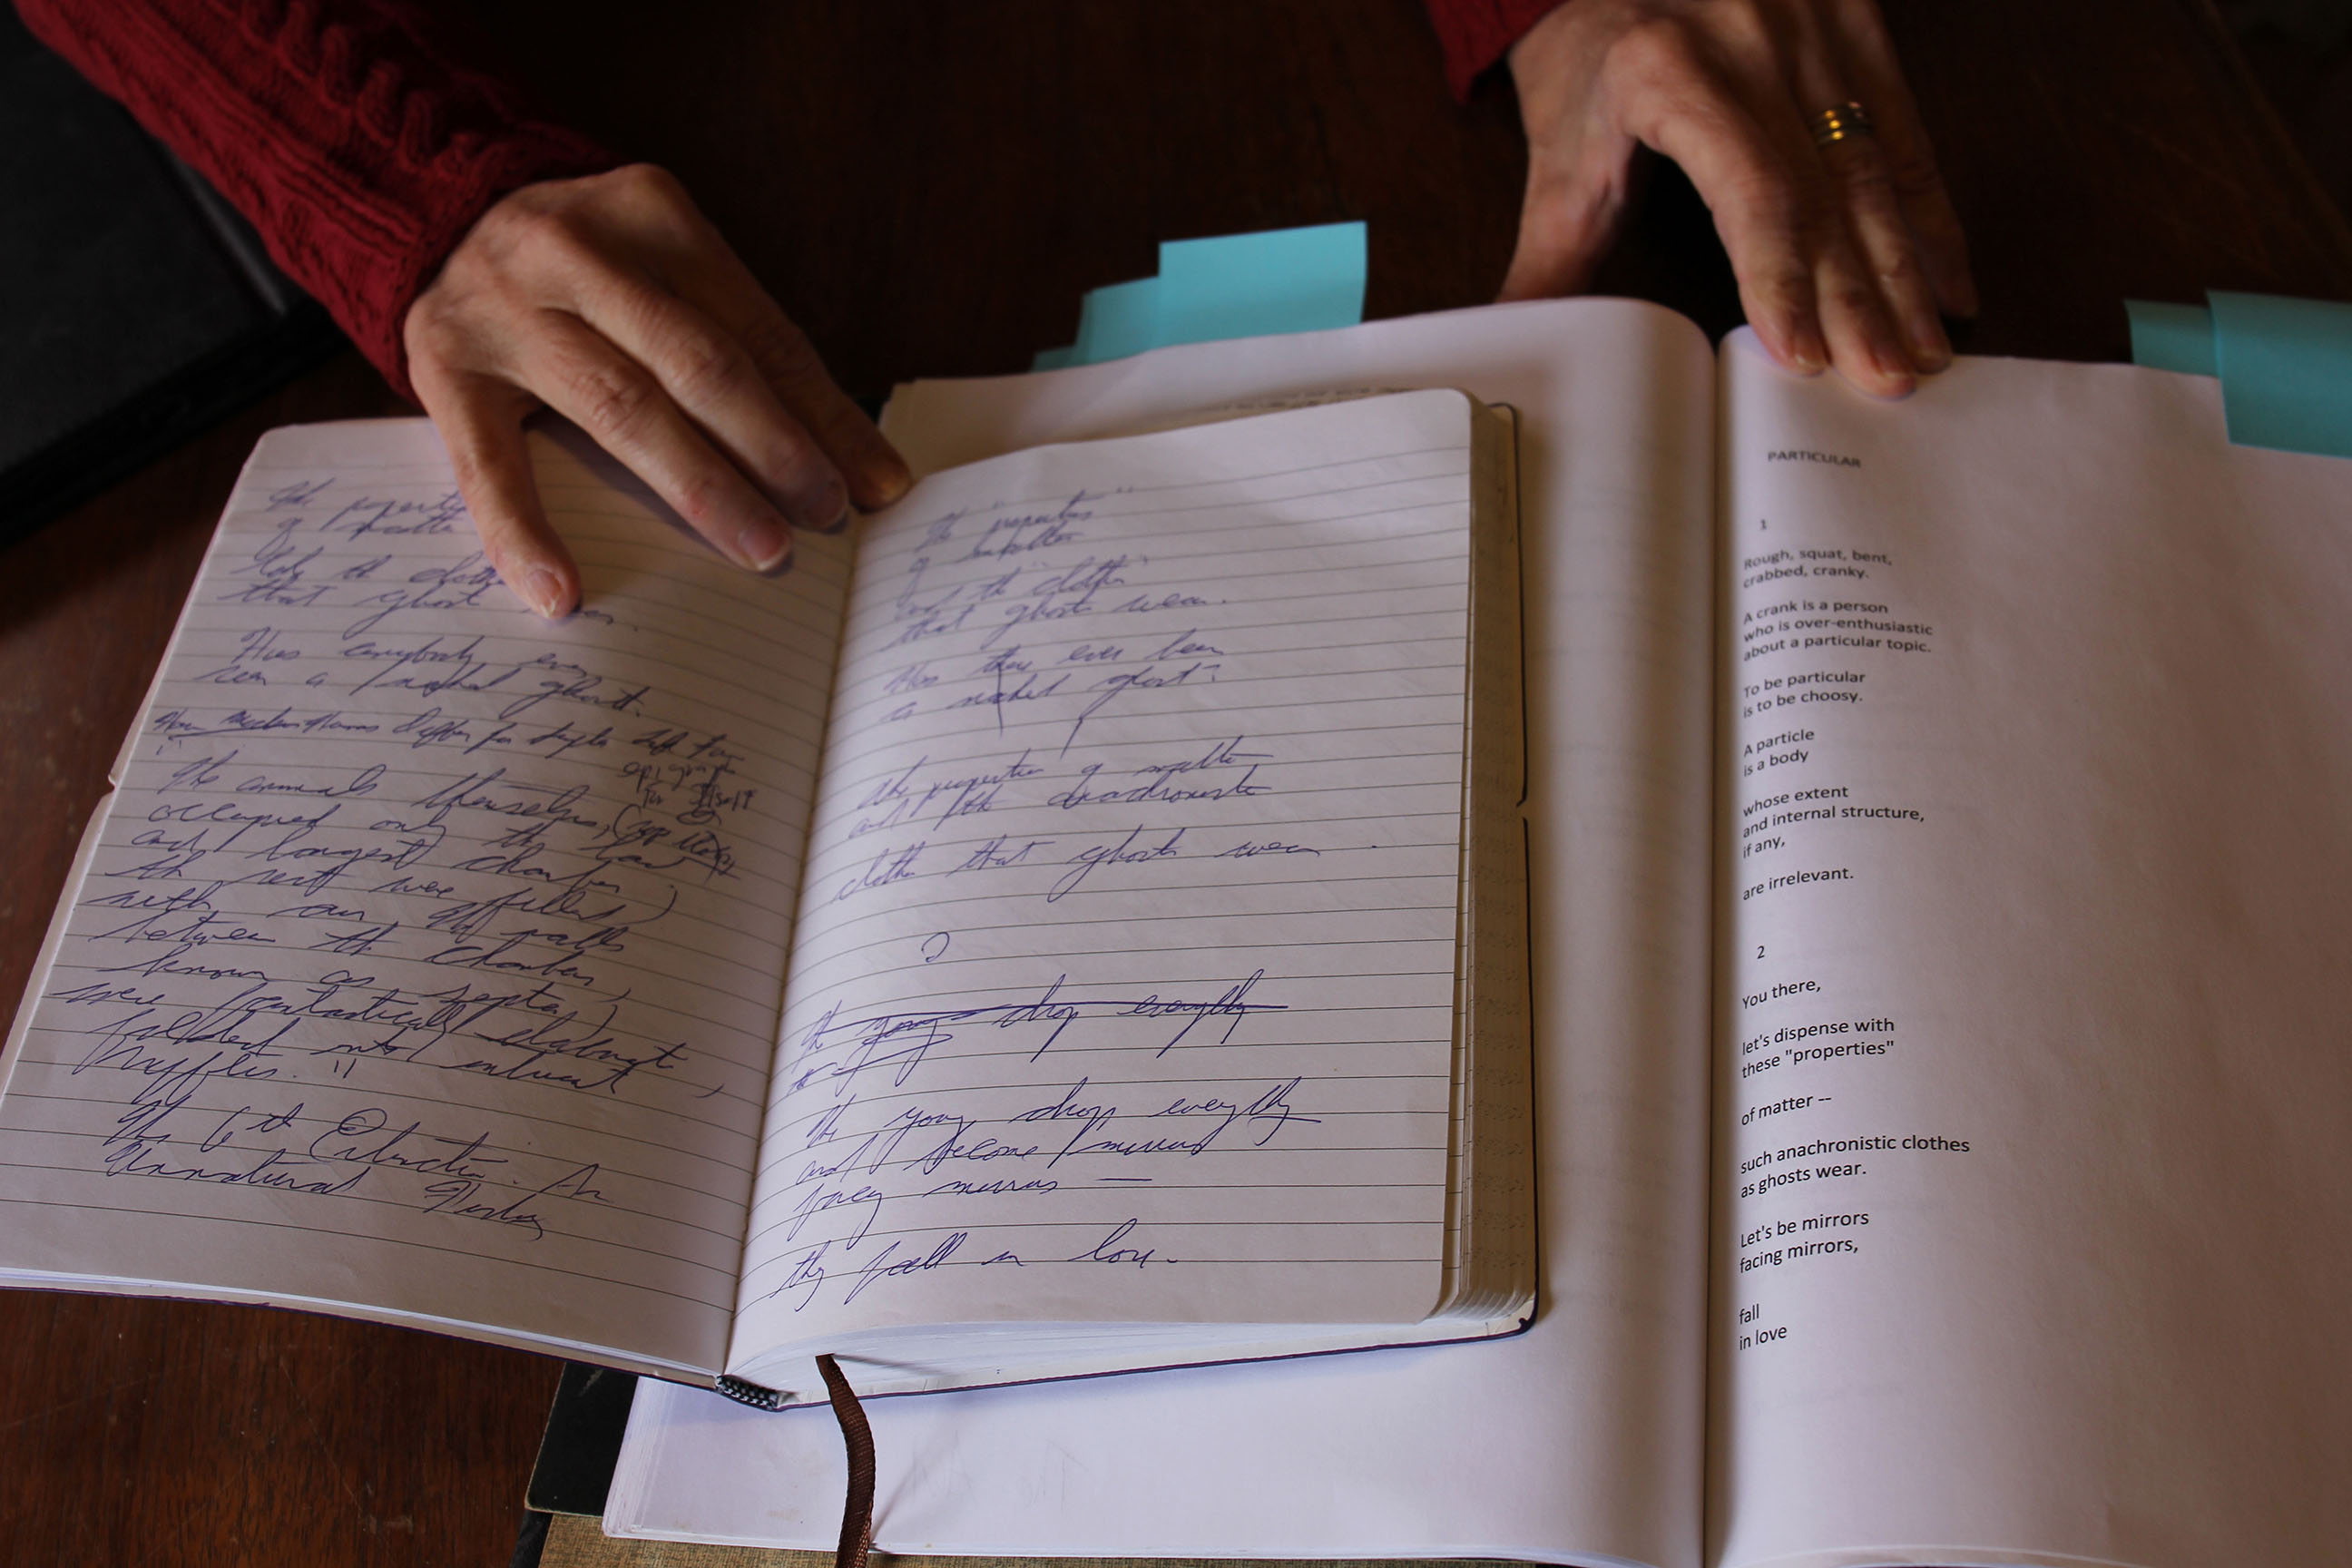 The properti
of matter
that ghost
Has everybody ever
seen a naked ghost.
The animals themselves,
occupied only the last
and longest chamber;
the rest were filled
with air. The walls
between the chambers,
known as septa,
were fantastically elaborate,
folded into intricate
ruffles."
The 6th Extinction: An
Unnatural History
The "properties"
of matter
and the "clothes"
that ghosts wear.
Has there ever been
a naked ghost?
The properties of matter
and the anachronistic
clothes that ghosts wear.
2
The young drop everything
The young drop everything
and become mirrors
facing mirrors —
they fall in love.
PARTICULAR
1
Rough, squat, bent,
crabbed, cranky.
A crank is a person
who is over-enthusiastic
about a particular topic.
To be particular
is to be choosy.
A particle
is a body
whose extent
and internal structure,
if any,
are irrelevant.
2
You there,
let's dispense with
these "properties"
of matter --
such anachronistic clothes
as ghosts wear.
Let's be mirrors
facing mirrors,
fall
in love